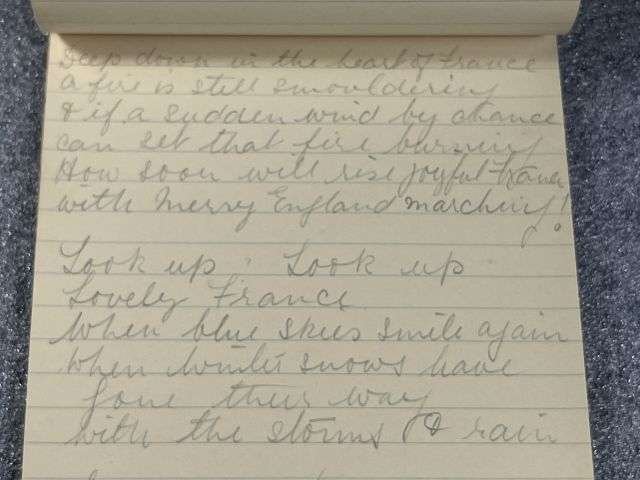 Deep down in the heart of France
a fire is still smouldering
& if a sudden wind by chance
can set that fire burning
How soon will rise joyful France
with Merry England marching!
Look up, Look up
Lovely France
When blue skies smile again
When Winter snows have
gone their way
with the storms & rain